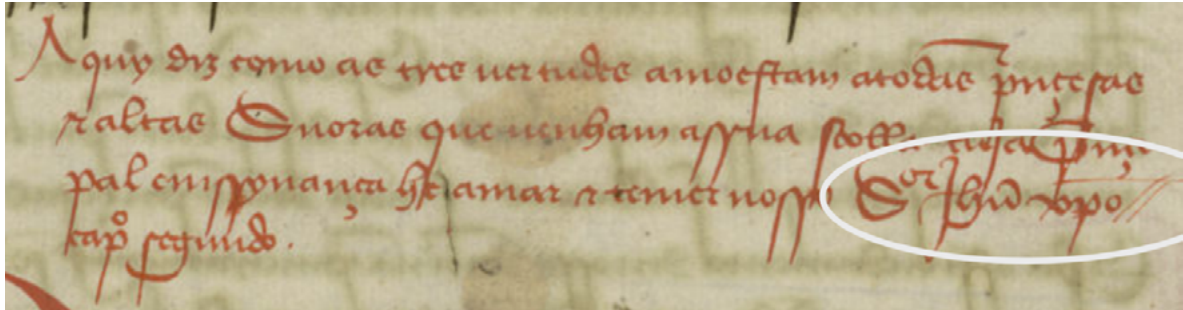 Aquy diz como as tres uertudes amoestam atodas p̃ncesas
⁊ altas Snoras que uenham assua scolla cuja p̃nçi
pal enssynança he amar ⁊ temer nosso Sor Jhũ xpo
capo segundo.